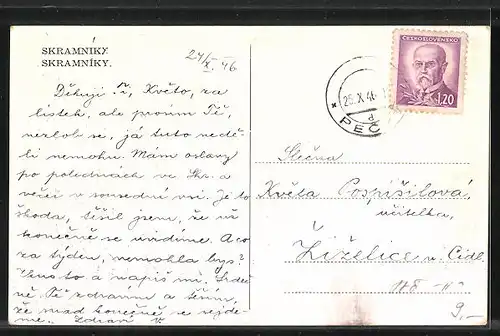 SKRAMNÍKY.
SKRAMNÍKY.
24/X. 46
Děkuji Ti, Květo, za
lístek, ale prosím Tě,
nezlob se, já tuto nedě-
li nemohu. Mám oslavy
po poledni ve Skr. a
večer v sousední vsi. Je to
škoda, těšil jsem, že už
konečně se uvidíme. A co
za týden, nemohla bys?
to a napiš mi. Srdeč-
ně Tě zdravím a těším,
že snad konečně se sejde-
me. Zdraví
ČESKOSLOVENSKO
1.20
25.X.46
PEČ
d
Slečna
Květa Pospíšilová,
učitelka,
Žiželice n. Cidl.
9,-